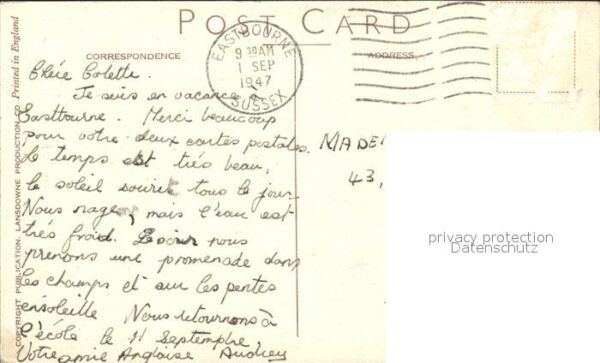 POST CARD
CORRESPONDENCE
ADDRESS
EASTBOURNE
9 30 AM
1 SEP
1947
SUSSEX
COPYRIGHT PUBLICATION, LANSDOWNE PRODUCTION CO. Printed in England
Chérie Colette.
Je suis en vacance à
Eastbourne. Merci beaucoup
pour votre deux cartes postales.
Le temps est très beau,
le soleil sourit tous le jour
Nous nageons, mais l'eau est
très froid. Le soir nous
prenons une promenade dans
les champs et sur les pentes
ensoleillé Nous retournons à
l'école le 11 Septembre
Votre amie Anglaise Audrey
MADE
43,
privacy protection
Datenschutz